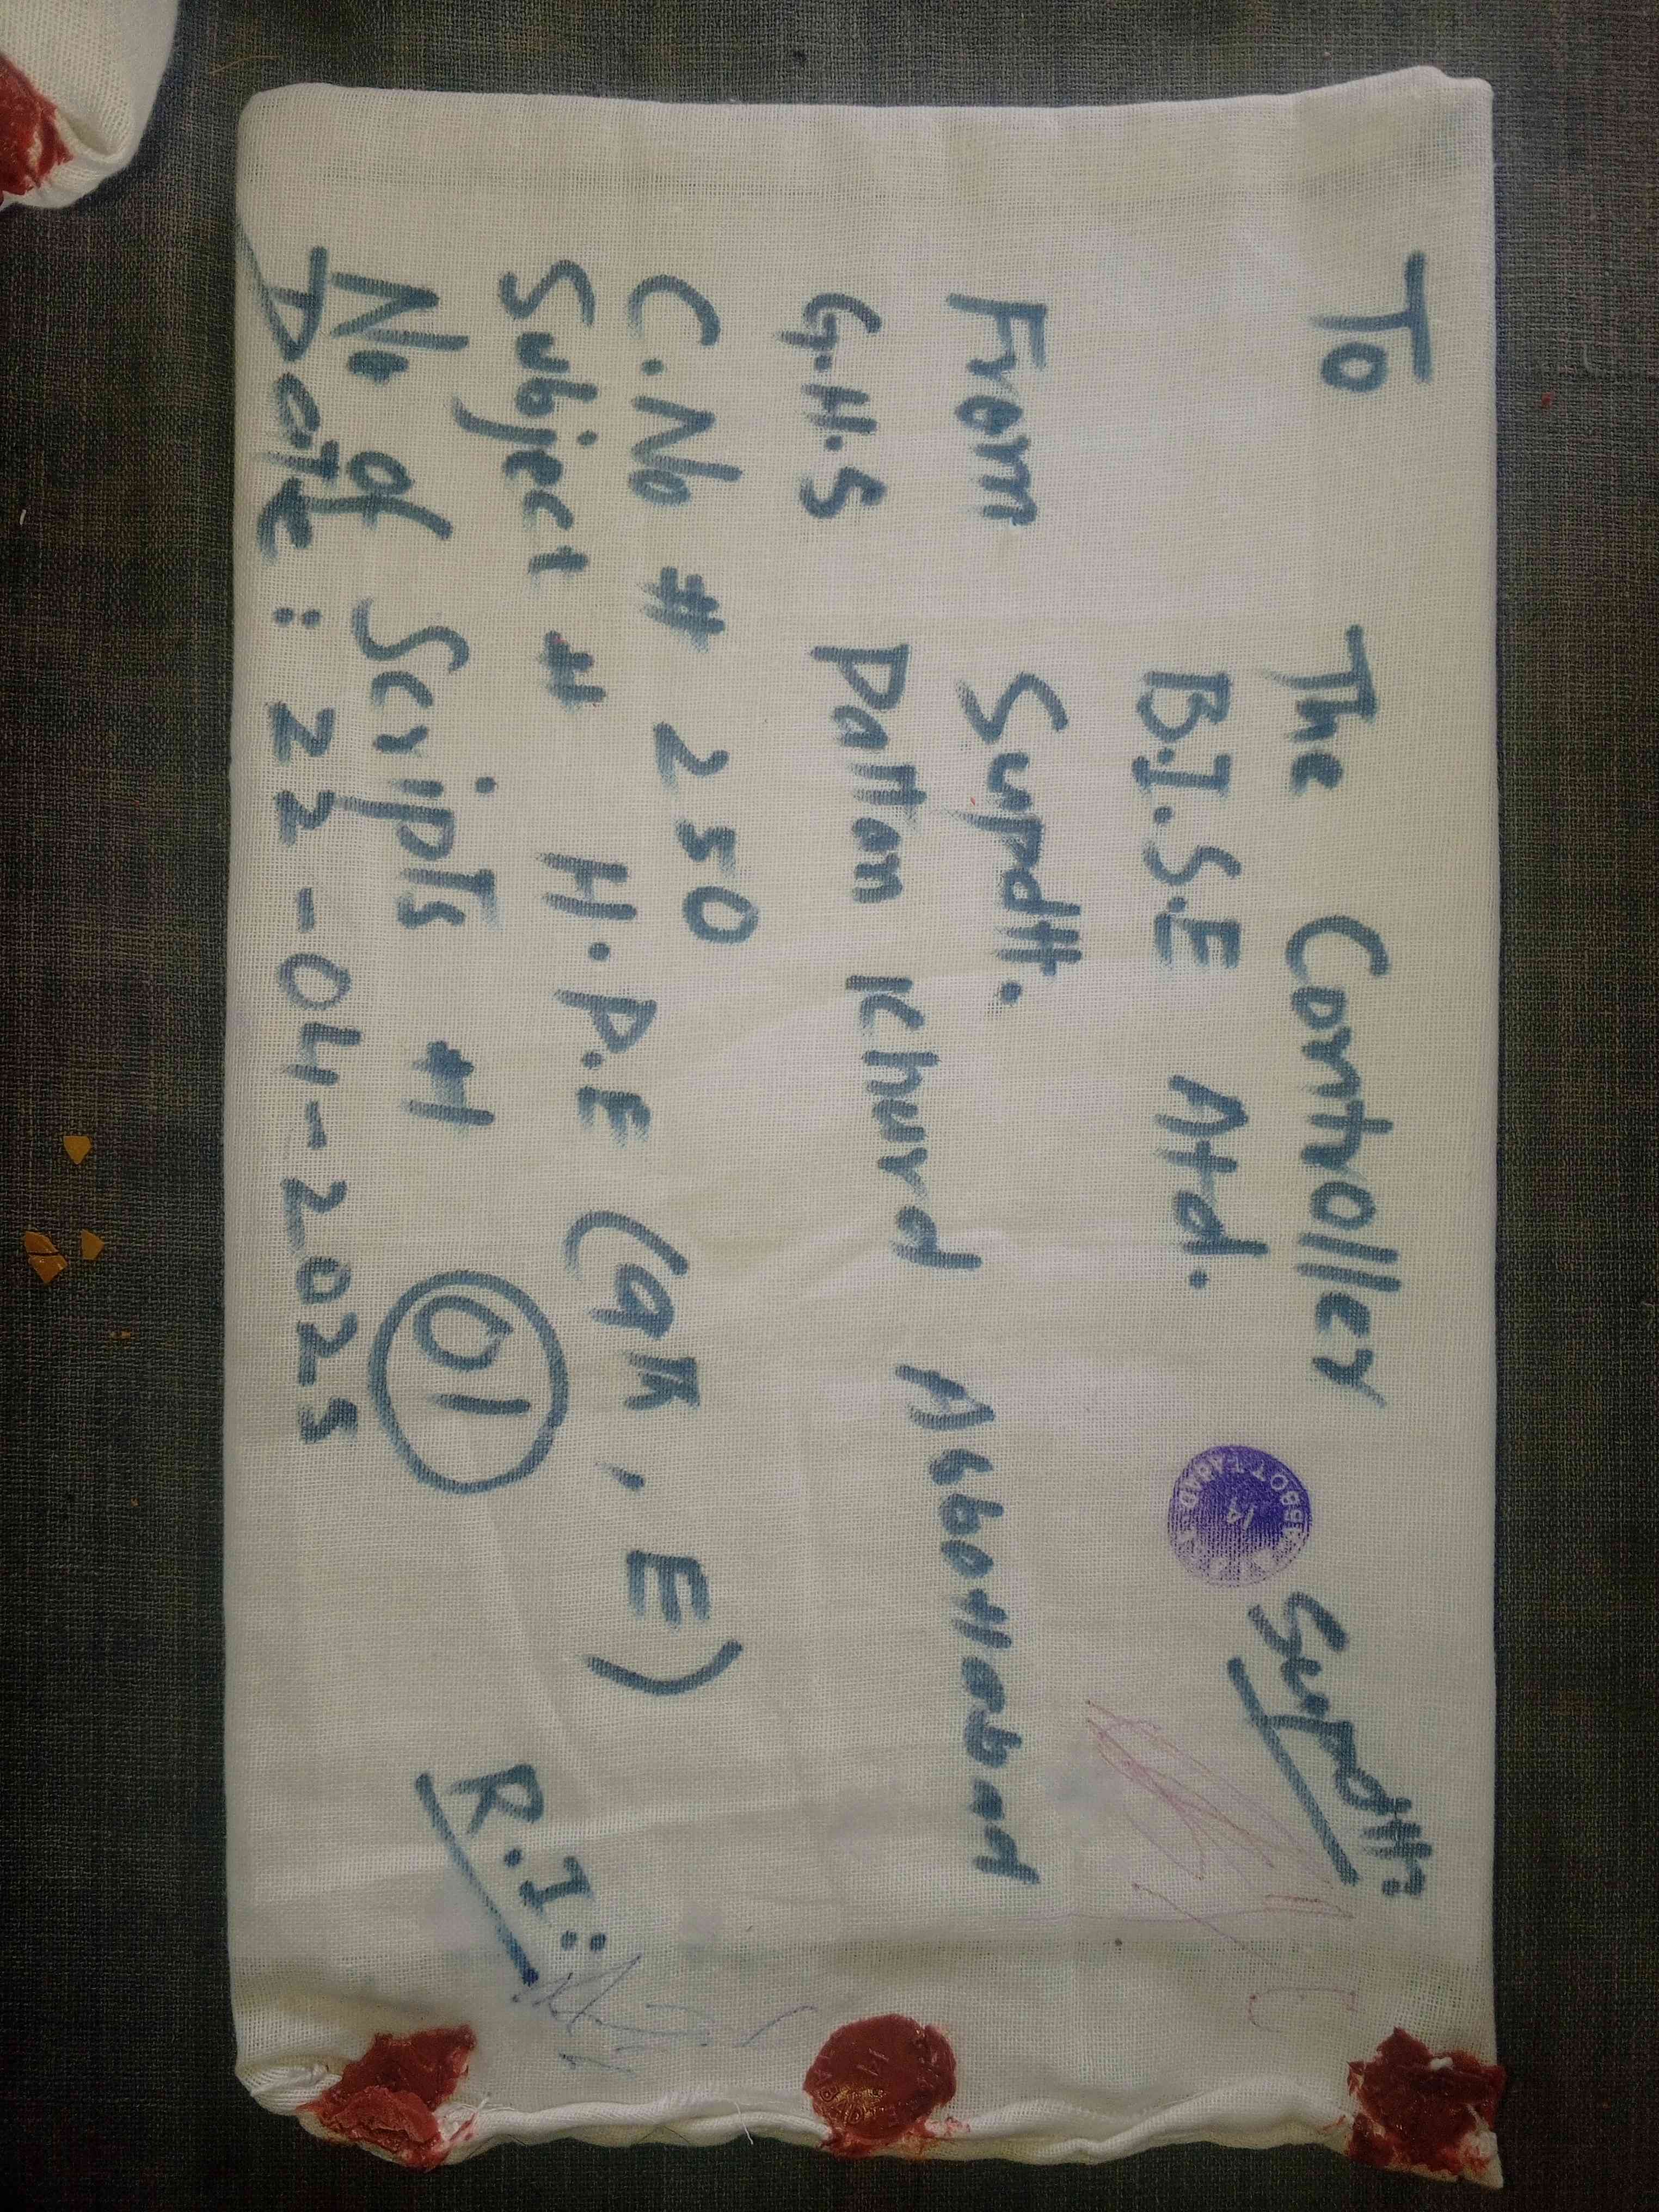 To
The Controller
B.I.S.E Atd.
Supdtt:
ABBOTTABAD
14
From
Supdtt.
G.H.S Pattan Khurd Abbottabad
C.No # 250
Subject # H.P.E (9th, E)
No of Scripts # 01
R.I:
Date: 22-04-2025